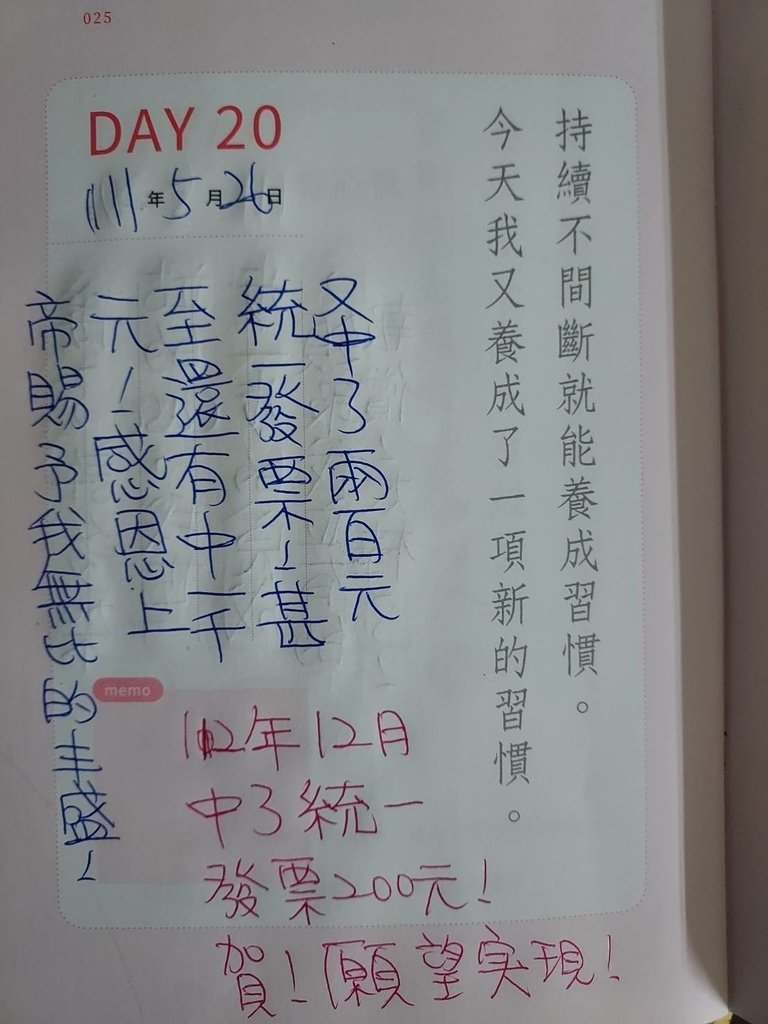 025
DAY 20
111年5月26日
持續不間斷就能養成習慣。
今天我又養成了一項新的習慣。
又中了兩百元
統一發票！甚
至還有中一千
元！感恩上
帝賜予我無比的丰盛！
memo
112年12月
中了統一
發票200元！
賀！願望実現！